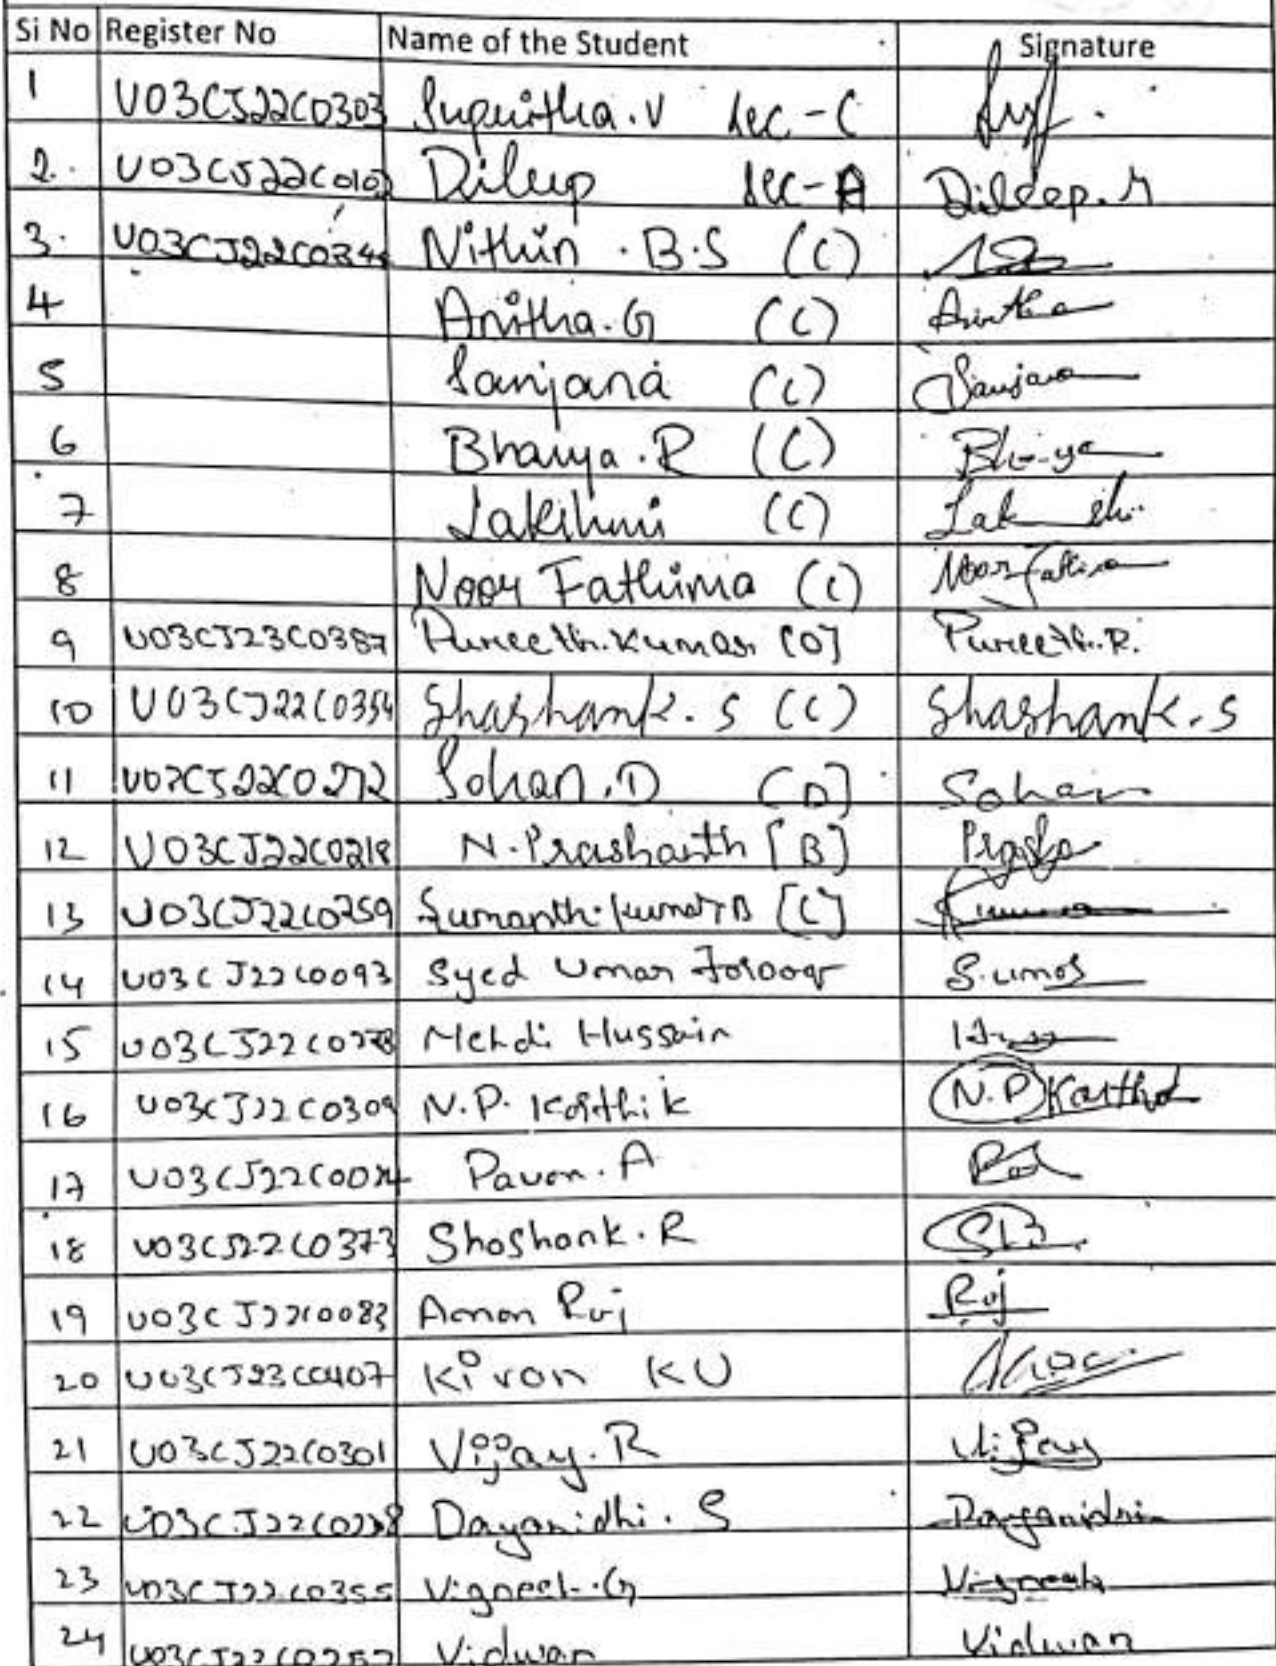 Si No Register No Name of the Student Signature
1 U03CJ22C0303 Supritha.V Sec-C
2. U03CJ22C010 Dileep Sec-A Dileep.M
3. U03CJ22C034 Nithin.B.S (C)
4 Anitha.G (C) Anitha
5 Sanjana (C) Sanjana
6 Bhavya.R (C) Bhavya
7 Lakshmi (C)
8 Noor Fathima (C) Noor Fathima
9 U03CJ23C0387 Puneeth.Kumar [D] Puneeth.R.
10 U03CJ22C0354 Shashank.S (C) Shashank.S
11 U03CJ22C0272 Sohan.D [D] Sohan
12 U03CJ22C0218 N.Prashanth [B]
13 U03CJ22C0359 Sumanth.kumar B [C]
14 U03CJ22C0093 Syed Umar Farooq S.umar
15 Mehdi Hussain
16 U03CJ22C0309 N.P. Karthik N.P Karthik
17 Pavan.A
18 U03CJ22C0373 Shashank.R
19 U03CJ22C0083 Aman Raj Raj
20 U03CJ23C0407 Kiran KU
21 U03CJ22C0301 Vijay.R Vijay
22 Dayanidhi.S Dayanidhi
23 U03CJ22C0355 Vignesh.G Vignesh
24 Vidwan Vidwan